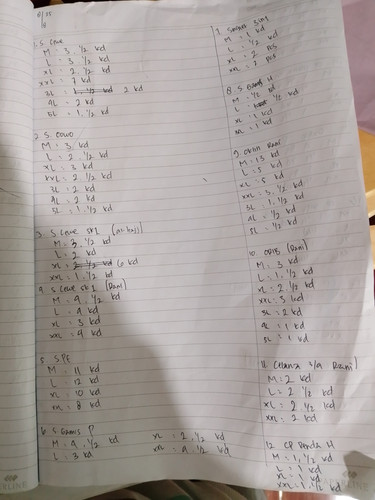 1. S. Cewe
M = 3 1/2 kd
L = 3 1/2 kd
XL = 2 1/2 kd
XXL = 7 kd
3L = 2 kd
4L = 2 kd
5L = 1 1/2 kd
2. S. Cowo
M = 3 kd
L = 2 1/2 kd
XL = 3 kd
XXL = 2 1/2 kd
3L = 2 kd
4L = 2 kd
5L = 1 1/2 kd
3 S Cewe SK1
M = 3 1/2 kd
L = 2 kd
XL = 2 1/2 kd 6 kd
XXL = 1 1/2 kd
4 S Cewe SK1 (Rani)
M = 4 1/2 kd
L = 4 kd
XL = 3 kd
XXL = 4 kd
5. SPE
M = 11 kd
L = 12 kd
XL = 10 kd
XXL = 8 kd
6 S Gamis P
M = 4 1/2 kd
L = 3 kd
XL = 2 1/2 kd
XXL = 4 1/2 kd
M = 1 kd
L = 1/2 kd
XL = 2 pcs
XXL = 2 pcs
8. S Gamis H
M = 1/2 kd
L = 1/2 kd
XL = 1 kd
XXL = 1 kd
9. Oblin Rani
M = 13 kd
L = 5 kd
XL = 5 kd
XXL = 3 1/2 kd
3L = 1 1/2 kd
4L = 1/2 kd
5L = 1/2 kd
10. (Rani)
M = 3 kd
L = 1 1/2 kd
XL = 2 1/2 kd
XXL = 3 kd
3L = 2 kd
4L = 1 kd
5L = 1 kd
11. Celana 3/4 Rani)
M = 2 kd
L = 2 1/2 kd
XL = 2 1/2 kd
XXL = 2 kd
12. CP Renda H
M = 1 1/2 kd
L = 1 kd
XL = 1 kd
XXL = 1 1/2 kd